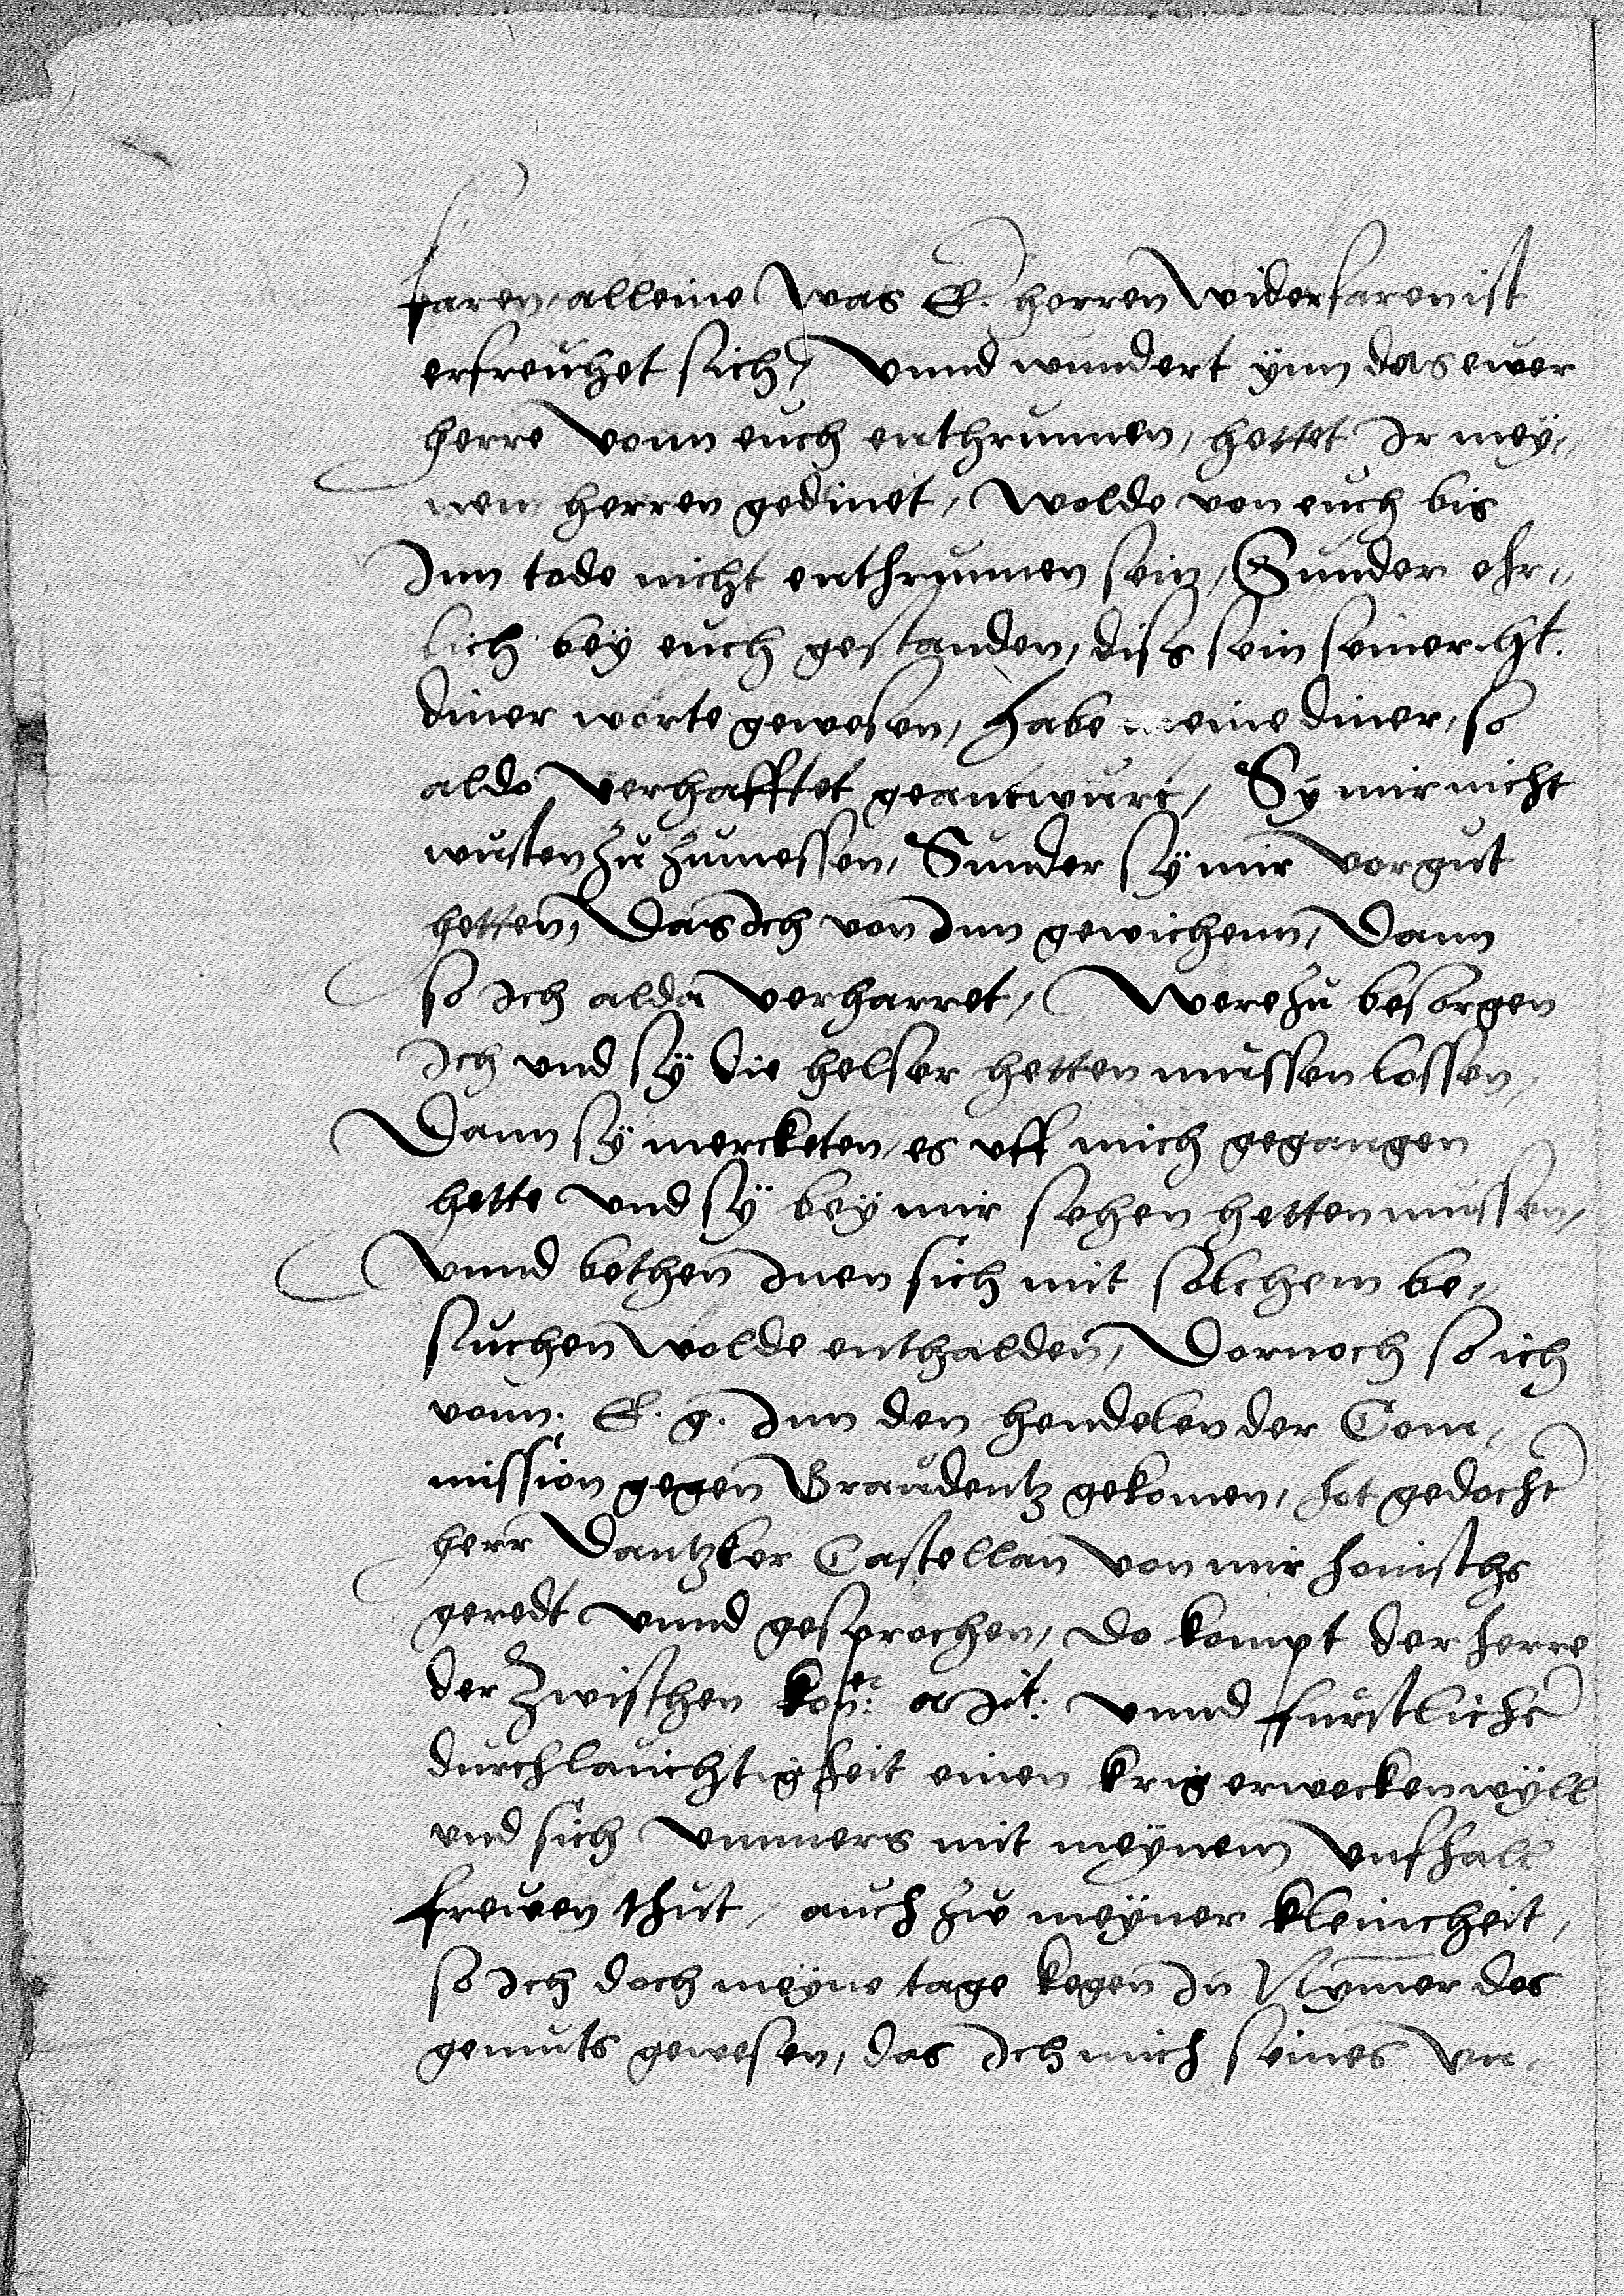 faren, alleine was E. herren widerfaren ist
erfreuhet sich, Vnnd wundert ÿnn das ewer
herre vonn euch enthrunnen, hettet Ir mey„
nem herren gedinet, wolde von euch bis
Inn tode nicht enthrunnen sein, Sunder ehr„
lich beÿ euch gestanden, diss sein seiner
diner worte gewesen, habe meine diner, so
aldo verhafftet geantwurt, Sÿ mir nicht
wusten zu zumessen, Sunder sÿ mir vor gut
hetten, Das Ich von Inn gewichenn, Dann
so Ich alda verharret, Were zu besorgen
Ich vnd sÿ die helser hetten mussen lossen,
Dann sÿ merckten, es vff mich gegangen
hette vnd sÿ beÿ mir sehen hetten mussen,
Vnnd bethen Inen sich mit solchem be„
suchen wolde enthalden, Dornoch so ich
vonn. E. g. Inn den hendelen der Com„
mission gegen Graudentz gekomen, hot gedocht
herr Dantzker Castellan von mir honisths
geredt vnnd gesprochen, do kompt der herre
der zwischen kon: vnnd furstlicher
durchlauchtigkeit einen krig erwecken wÿll
vnd sich vmmers mit meÿnem vnfhall
frewen thut, auch zw meÿner kleincheit,
so Ich doch meÿne tage kegen In Nÿmer des
gemuts gewesen, das Ich mich seines vn„